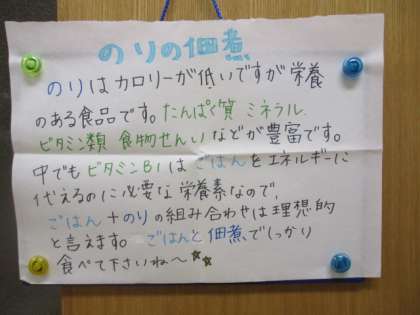 のりの佃煮
のりはカロリーが低いですが栄養
のある食品です。たんぱく質 ミネラル
ビタミン類 食物せんいなどが豊富です。
中でもビタミンB1はごはんをエネルギーに
代えるのに必要な栄養素なので、
ごはん+のりの組み合わせは理想的
と言えます。ごはんと佃煮でしっかり
食べて下さいね〜☆☆